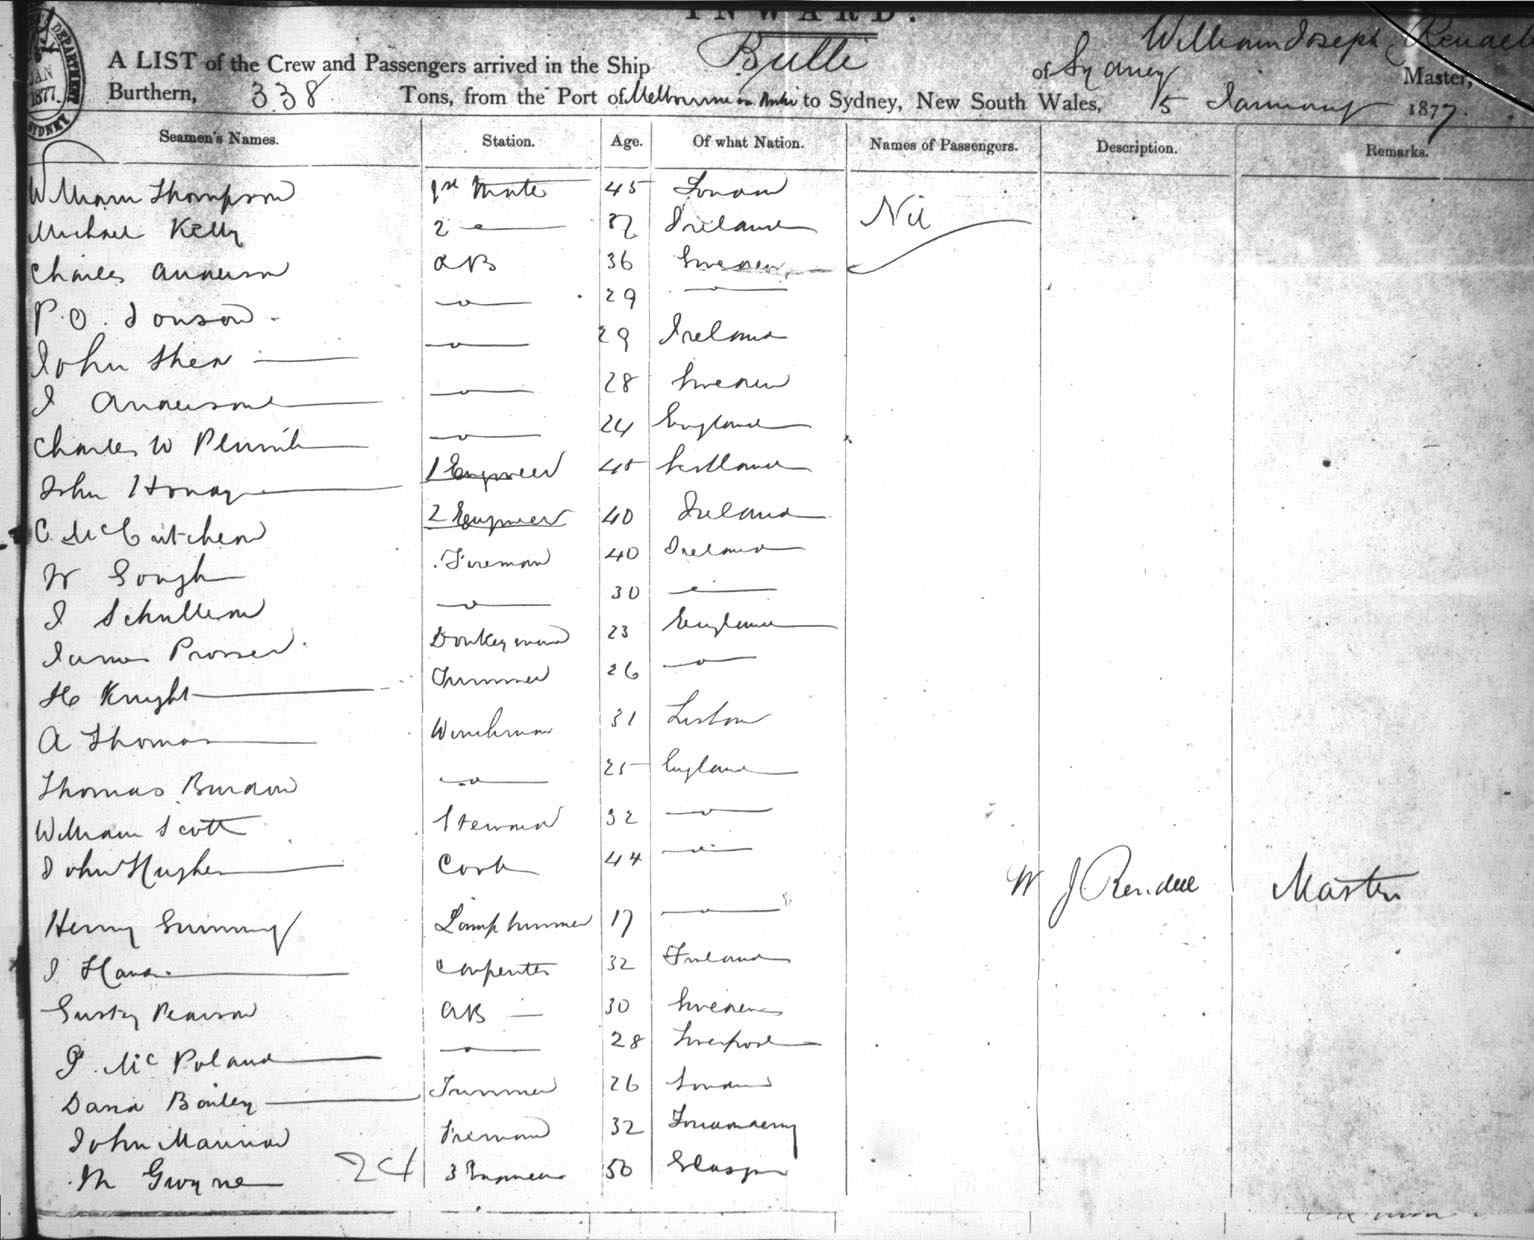 INWARD.
A LIST of the Crew and Passengers arrived in the Ship Bulli of Sydney William Joseph Rendell Master,
Burthern, 338 Tons, from the Port of Melbourne to Sydney, New South Wales, 15 January 1877.
Seamen's Names. Station. Age. Of what Nation. Names of Passengers. Description. Remarks.
William Thompson 1st Mate 45 London Nil
Michael Kelly 2 37 Ireland
Charles Anderson AB 36 Sweden
P. O. Jonson 29
John Shea 29 Ireland
J Anderson 28 Sweden
Charles W Plumb 24 England
John 1 Engineer 45 Scotland
C. McCutcheon 2 Engineer 40 Ireland
W Gough Fireman 40 Ireland
J 30
James Prosser Donkeyman 23 England
H Knight Trimmer 26
A Thomas Winchman 31 Lisbon
Thomas Burdon 25 England
William Scott Steward 32
John Hughes Cook 44 W J Rendell Master
Henry Lamp trimmer 17
J Carpenter 32
Gusty Pearson AB 30 Sweden
P. McPoland 28 Liverpool
David Bailey Trimmer 26 London
John Fireman 32
M Gwyne 24 3 Engineer 50 Glasgow